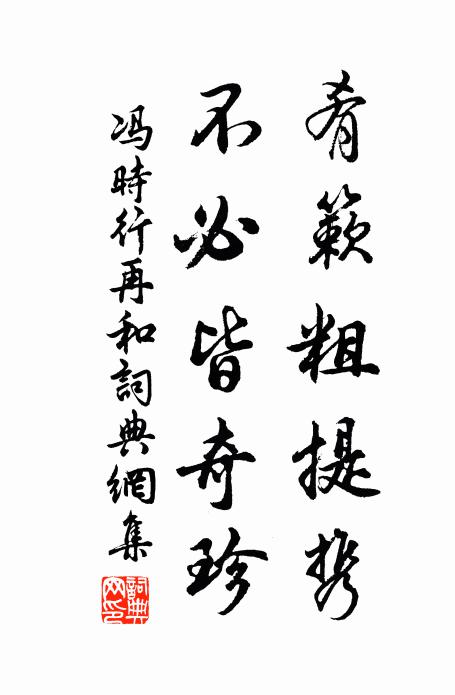 肴蔌粗提携
不必皆奇珍
冯時行再和詞典網集
詞典网印